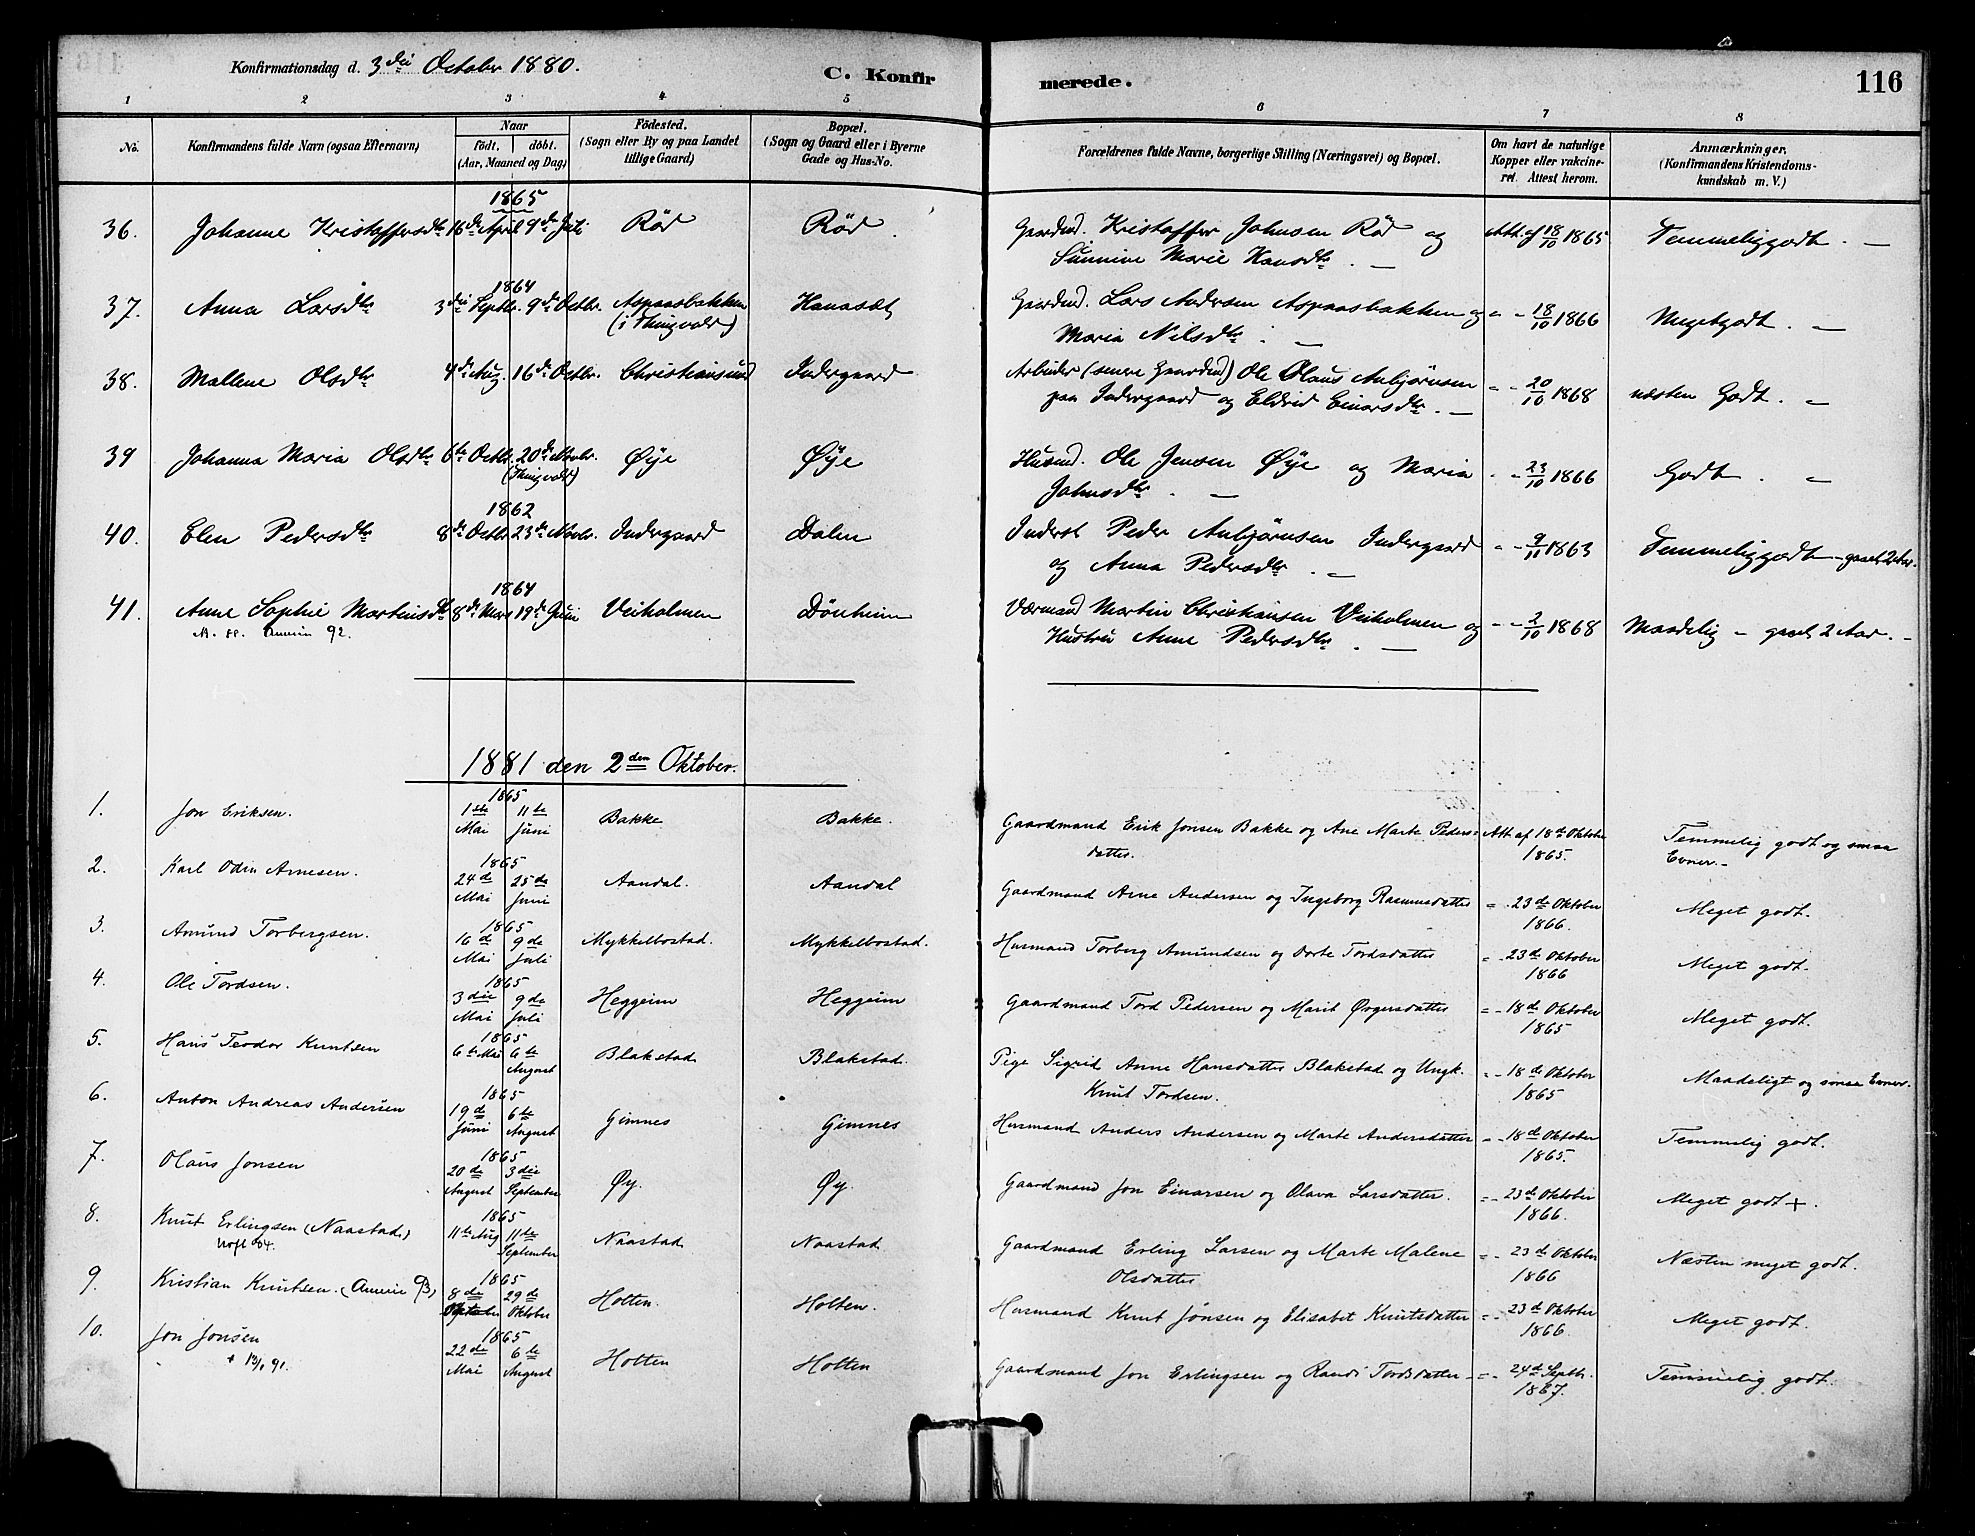 Konfirmationsdag d. 3die October 1880. C. Konfirmerede. 116
1 2 3 4 5 6 7 8
No. Konfirmandens fulde Navn (ogsaa Efternavn) Naar födt. döbt. (Aar, Maaned og Dag) Födested. (Sogn eller By og paa Landet tillige Gaard) Bopæl. (Sogn og Gaard eller i Byerne Gade og Hus-No. Forældrenes fulde Navne, borgerlige Stilling (Næringsvei) og Bopæl. Om havt de naturlige Kopper eller vakcineret. Attest herom. Anmærkninger. (Konfirmandens Kristendomskundskab m. V.)
1865
36. Johanne Kristoffersdtr 16de April 9de Juli Rød Rød. Gaardmd. Kristoffer Johnsen Rød og Att. af 18/10 1865 Temmeliggodt. —
Sünnive Marie Hansdtr. —
1864
37. Anna Larsdtr 3die Septbr. 9de Octbr. Aspaasbakken (i Thingvold) Hanasæt Gaardmd. Lars Andersen Aspaasbakken og " - 18/10 1866 Megetgodt. —
Maria Nilsdtr. —
38. Mallene Olsdtr 4de Aug. 16de Octbr. Christiansund Indergaard Arbeider (senere Gaardmd) Ole Olaus Anbjørnsen " - 20/10 1868 næsten Godt. —
paa Indergaard og Eldrid Einarsdtr. —
39 Johanna Maria Olsdtr 6te Octbr. 20de Novbr. (Thingvold) Øye Øye Husmd. Ole Jensen Øye og Maria " - 23/10 1866 Godt. —
Johnsdtr. —
1862
40. Elen Pedersdtr 8de Octbr 23de Novbr. Indergaard Dalen Inderst Peder Anbjørnsen Indergaard " - 9/11 1863 Temmeliggodt - gaaet 2 Aar.
og Anna Pedersdtr. —
1864
41. Anne Sophie Martinusdtr 8de Mars 19de Juni Veiholmen Dönheim Værmand Martin Christiansen Veiholmen og " - 2/10 1868 Maadelig - gaaet 2 Aar. -
Hustru Anne Pedersdtr. —
92.
1881 den 2den Oktober.
1. Jon Eriksen. 1865 1ste Mai 11te Juni Bakke Bakke. Gaardmand Erik Jonsen Bakke og Ane Marte Pedersdatter. Att. af 18de Oktober 1865. Temmelig godt og smaa Evner.-
2. Karl Odin Arnesen. 1865 24de Mai 25de Juni Aandal. Aandal Gaardmand Arne Andersen og Ingeborg Rasmusdatter " - 23de Oktober 1866. Meget godt.
3. Amund Torbergsen. 1865 16de Mai 9de Juli Mykkelbostad. Mykkelbostad. Husmand Torberg Amundsen og Dorte Tordsdatter " - 23de Oktober 1866 Meget godt.
4. Ole Tordsen. 1865 3die Mai 9de Juli Heggeim Heggeim Gaardmand Tord Pedersen og Marit Ørgersdatter " - 18de Oktober 1865 Meget godt.
5. Hans Teodor Knutsen 1865 6te Mai 6te August Blakstad Blakstad. Pige Sigrid Anne Hansdatter Blakstad og Ungk. Knut Tordsen. " - 18de Oktober 1865 Maadeligt og smaa Evner.
6. Anton Andreas Andersen 1865 19de Juni 6te August Gimnes Gimnes Husmand Anders Andersen og Marte Andersdatter " - 18de Oktober 1865. Temmelig godt.
7. Olaus Jonsen 1865 20de August 3die September Øy. Øy. Gaardmand Jon Einarsen og Olava Larsdatter. " - 23de Oktober 1866. Meget godt +.
8. Knut Erlingsen (Naastad) 1865 11te Aug 11te September Naastad Naastad Gaardmand Erling Larsen og Marte Malene Olsdatter " - 23de Oktober 1866 Næsten meget godt.
9. Kristian Knutsen. 1865 8de Oktober 29de Oktober Holten. Holten. Husmand Knut Jonsen og Elisabet Knutsdatter " - 23de Oktober 1866. Meget godt.
10. Jon Jonsen 1865 22de Mai 6te August Holten Holten Gaardmand Jon Erlingsen og Randi Tordsdatter " - 24de Septbr. 1867. Temmelig godt.